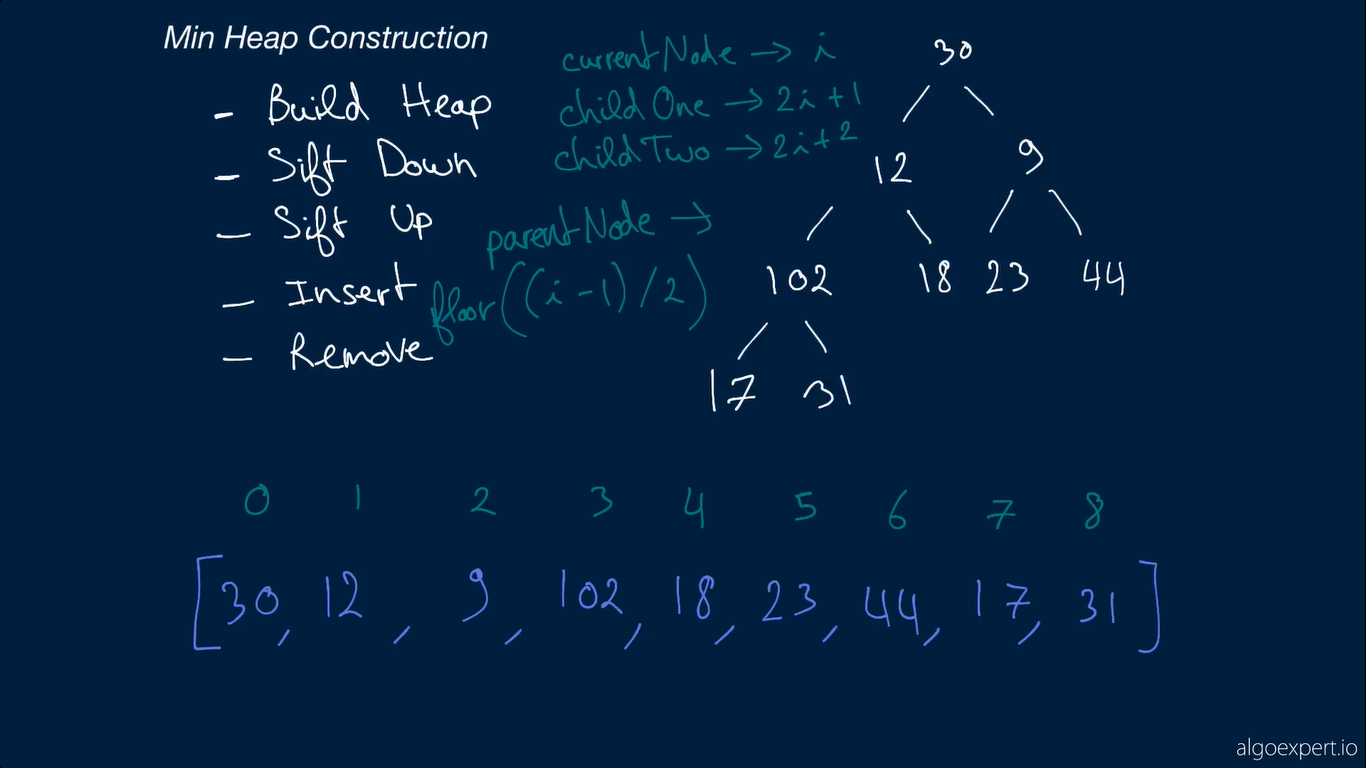 Min Heap Construction
- Build Heap
- Sift Down
- Sift Up
- Insert
- Remove
currentNode → i
childOne → 2i+1
childTwo → 2i+2
parentNode →
floor((i-1)/2)
30
12 9
102 18 23 44
17 31
0 1 2 3 4 5 6 7 8
[30, 12, 9, 102, 18, 23, 44, 17, 31]
algoexpert.io